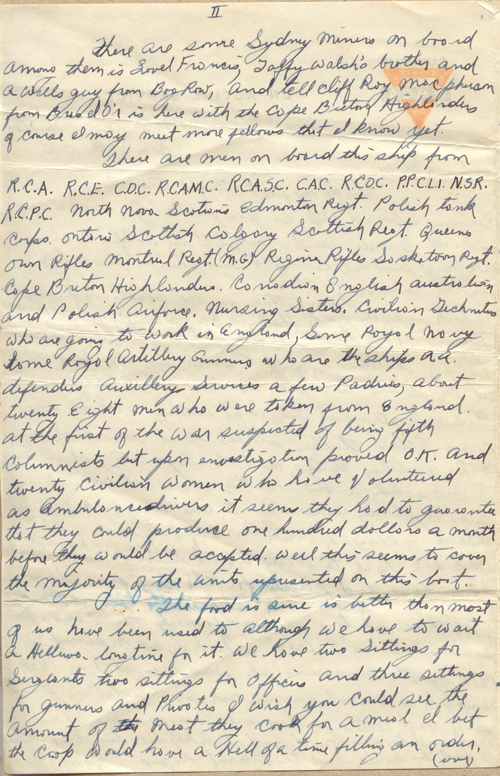 II
There are some Sydney Miners on board
among them is Lovel Francis, Taffy Walsh's brother and
a Wells guy from Bog Row, and tell Cliff Roy Macpherson
from Bras d'Or is here with the Cape Breton Highlanders
of course I may meet more fellows that I know yet.
There are men on board this ship from
R.C.A. R.C.E. C.D.C. R.C.A.M.C. R.C.A.S.C. C.A.C. R.C.D.C. P.P.C.L.I. N.S.R.
R.C.P.C. North Nova Scotians Edmonton Regt. Polish tank
corps. Ontario Scottish Calgary Scottish Regt. Queens
own Rifles Montreal Regt. (M.G) Regina Rifles Saskatoon Regt.
Cape Breton Highlanders. Canadian English australian
and Polish Airforce. Nursing Sisters. Civilian Technicians
who are going to work in England, Some Royal Navy
some Royal Artillery Gunners who are the ships A.A.
defenders Auxillery Services a few Padries, about
twenty Eight men who were taken from England.
at the first of the war suspected of being fifth
columnists but upon envestigation proved O.K. and
twenty Civilian women who have Volunteered
as ambulance drivers it seems they had to guarantee
that they could produce one hundred dollars a month
before they would be accepted. Well this seems to cover
the majority of the units represented on this boat.
The food is sure is better than most
of us have been used to although we have to wait
a Helluva longtime for it. We have two Sittings for
Sergants two sittings for Officers and three sittings
for gunners and Privates I wish you could see the
amount of meat they cook for a meal I bet
the coop would have a Hell of a time filling an order.
(over)